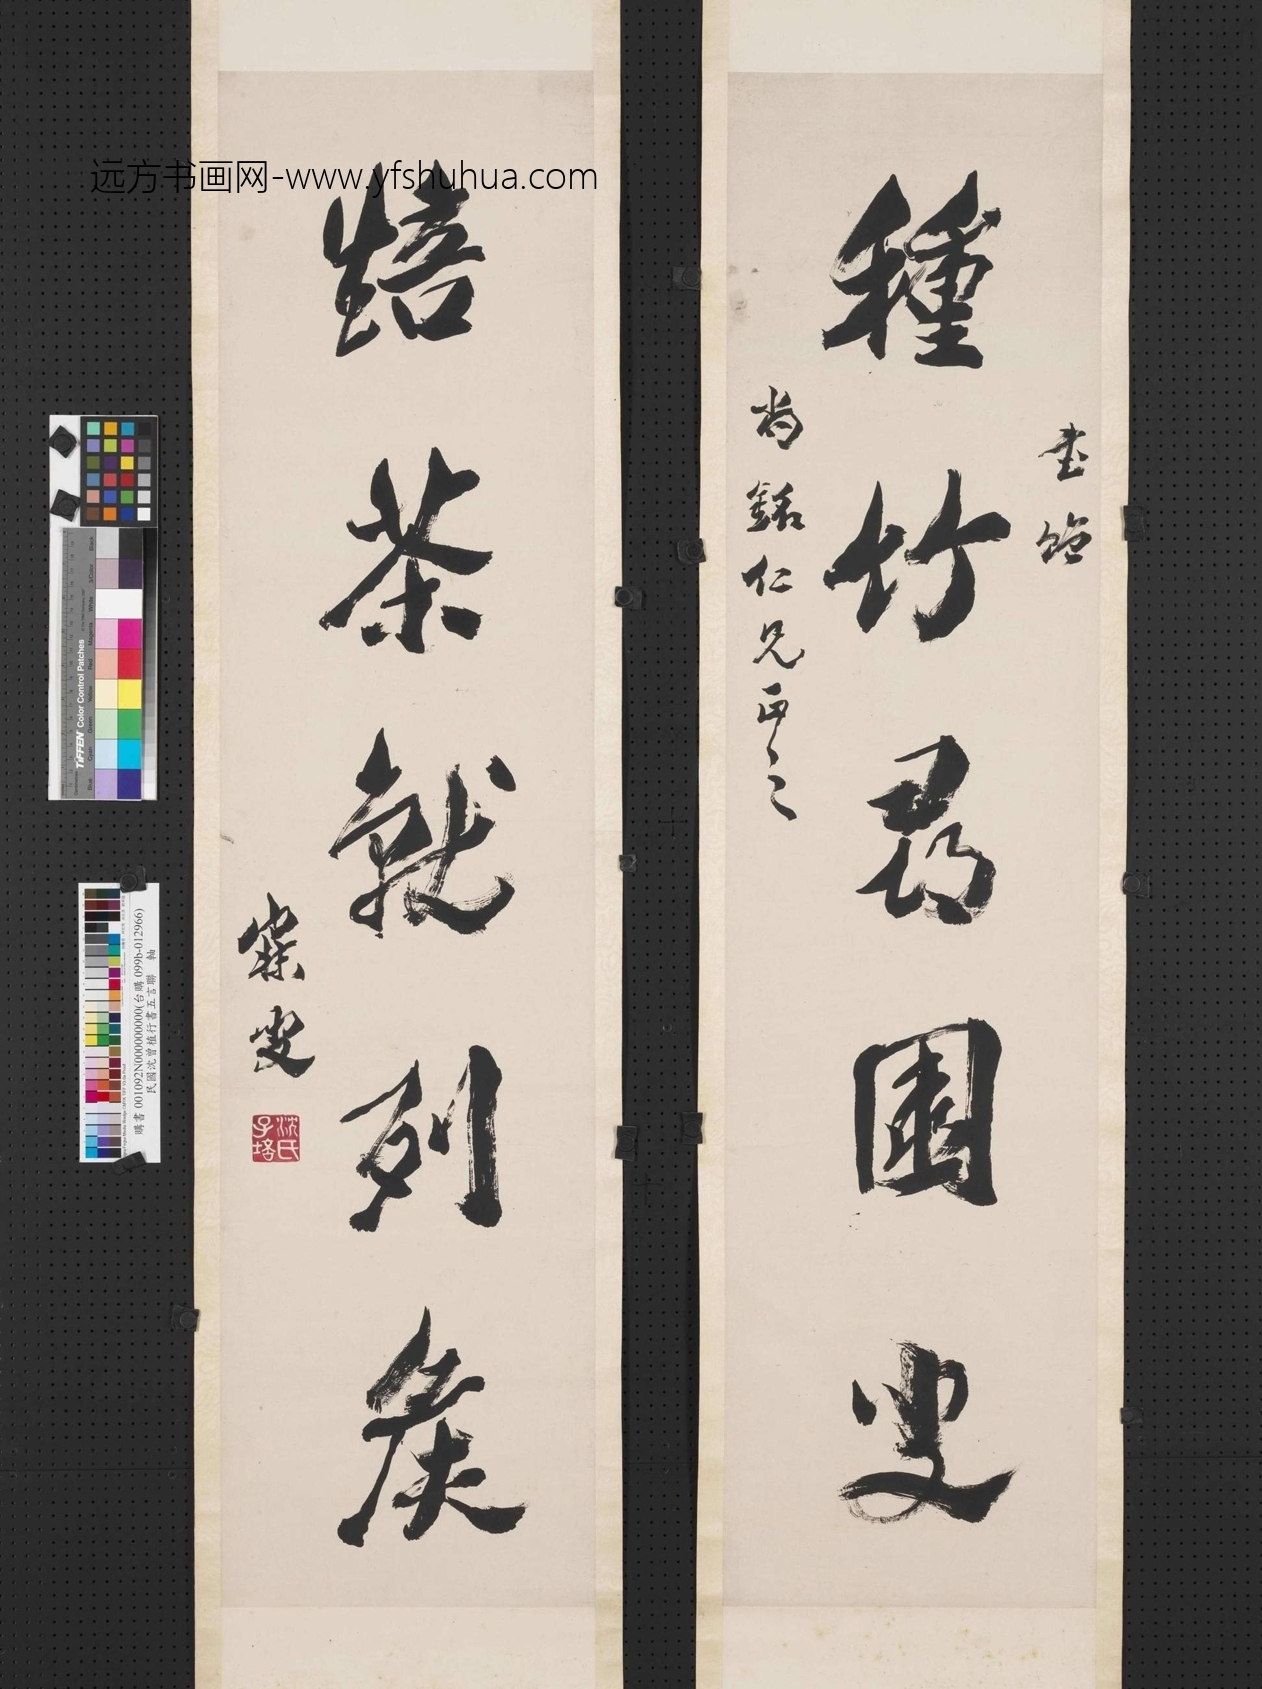 远方书画网-www.yfshuhua.com
種竹尋園叟
書餉
尚銘仁兄正之
焙茶就列矦
寐叟
沈氏子培
TIFFEN Color Control Patches
Blue Cyan Green Yellow Red Magenta White 3/Color Black
購書 001092N000000000(台購 099b-012966)
民國沈曾植行書五言聯 軸